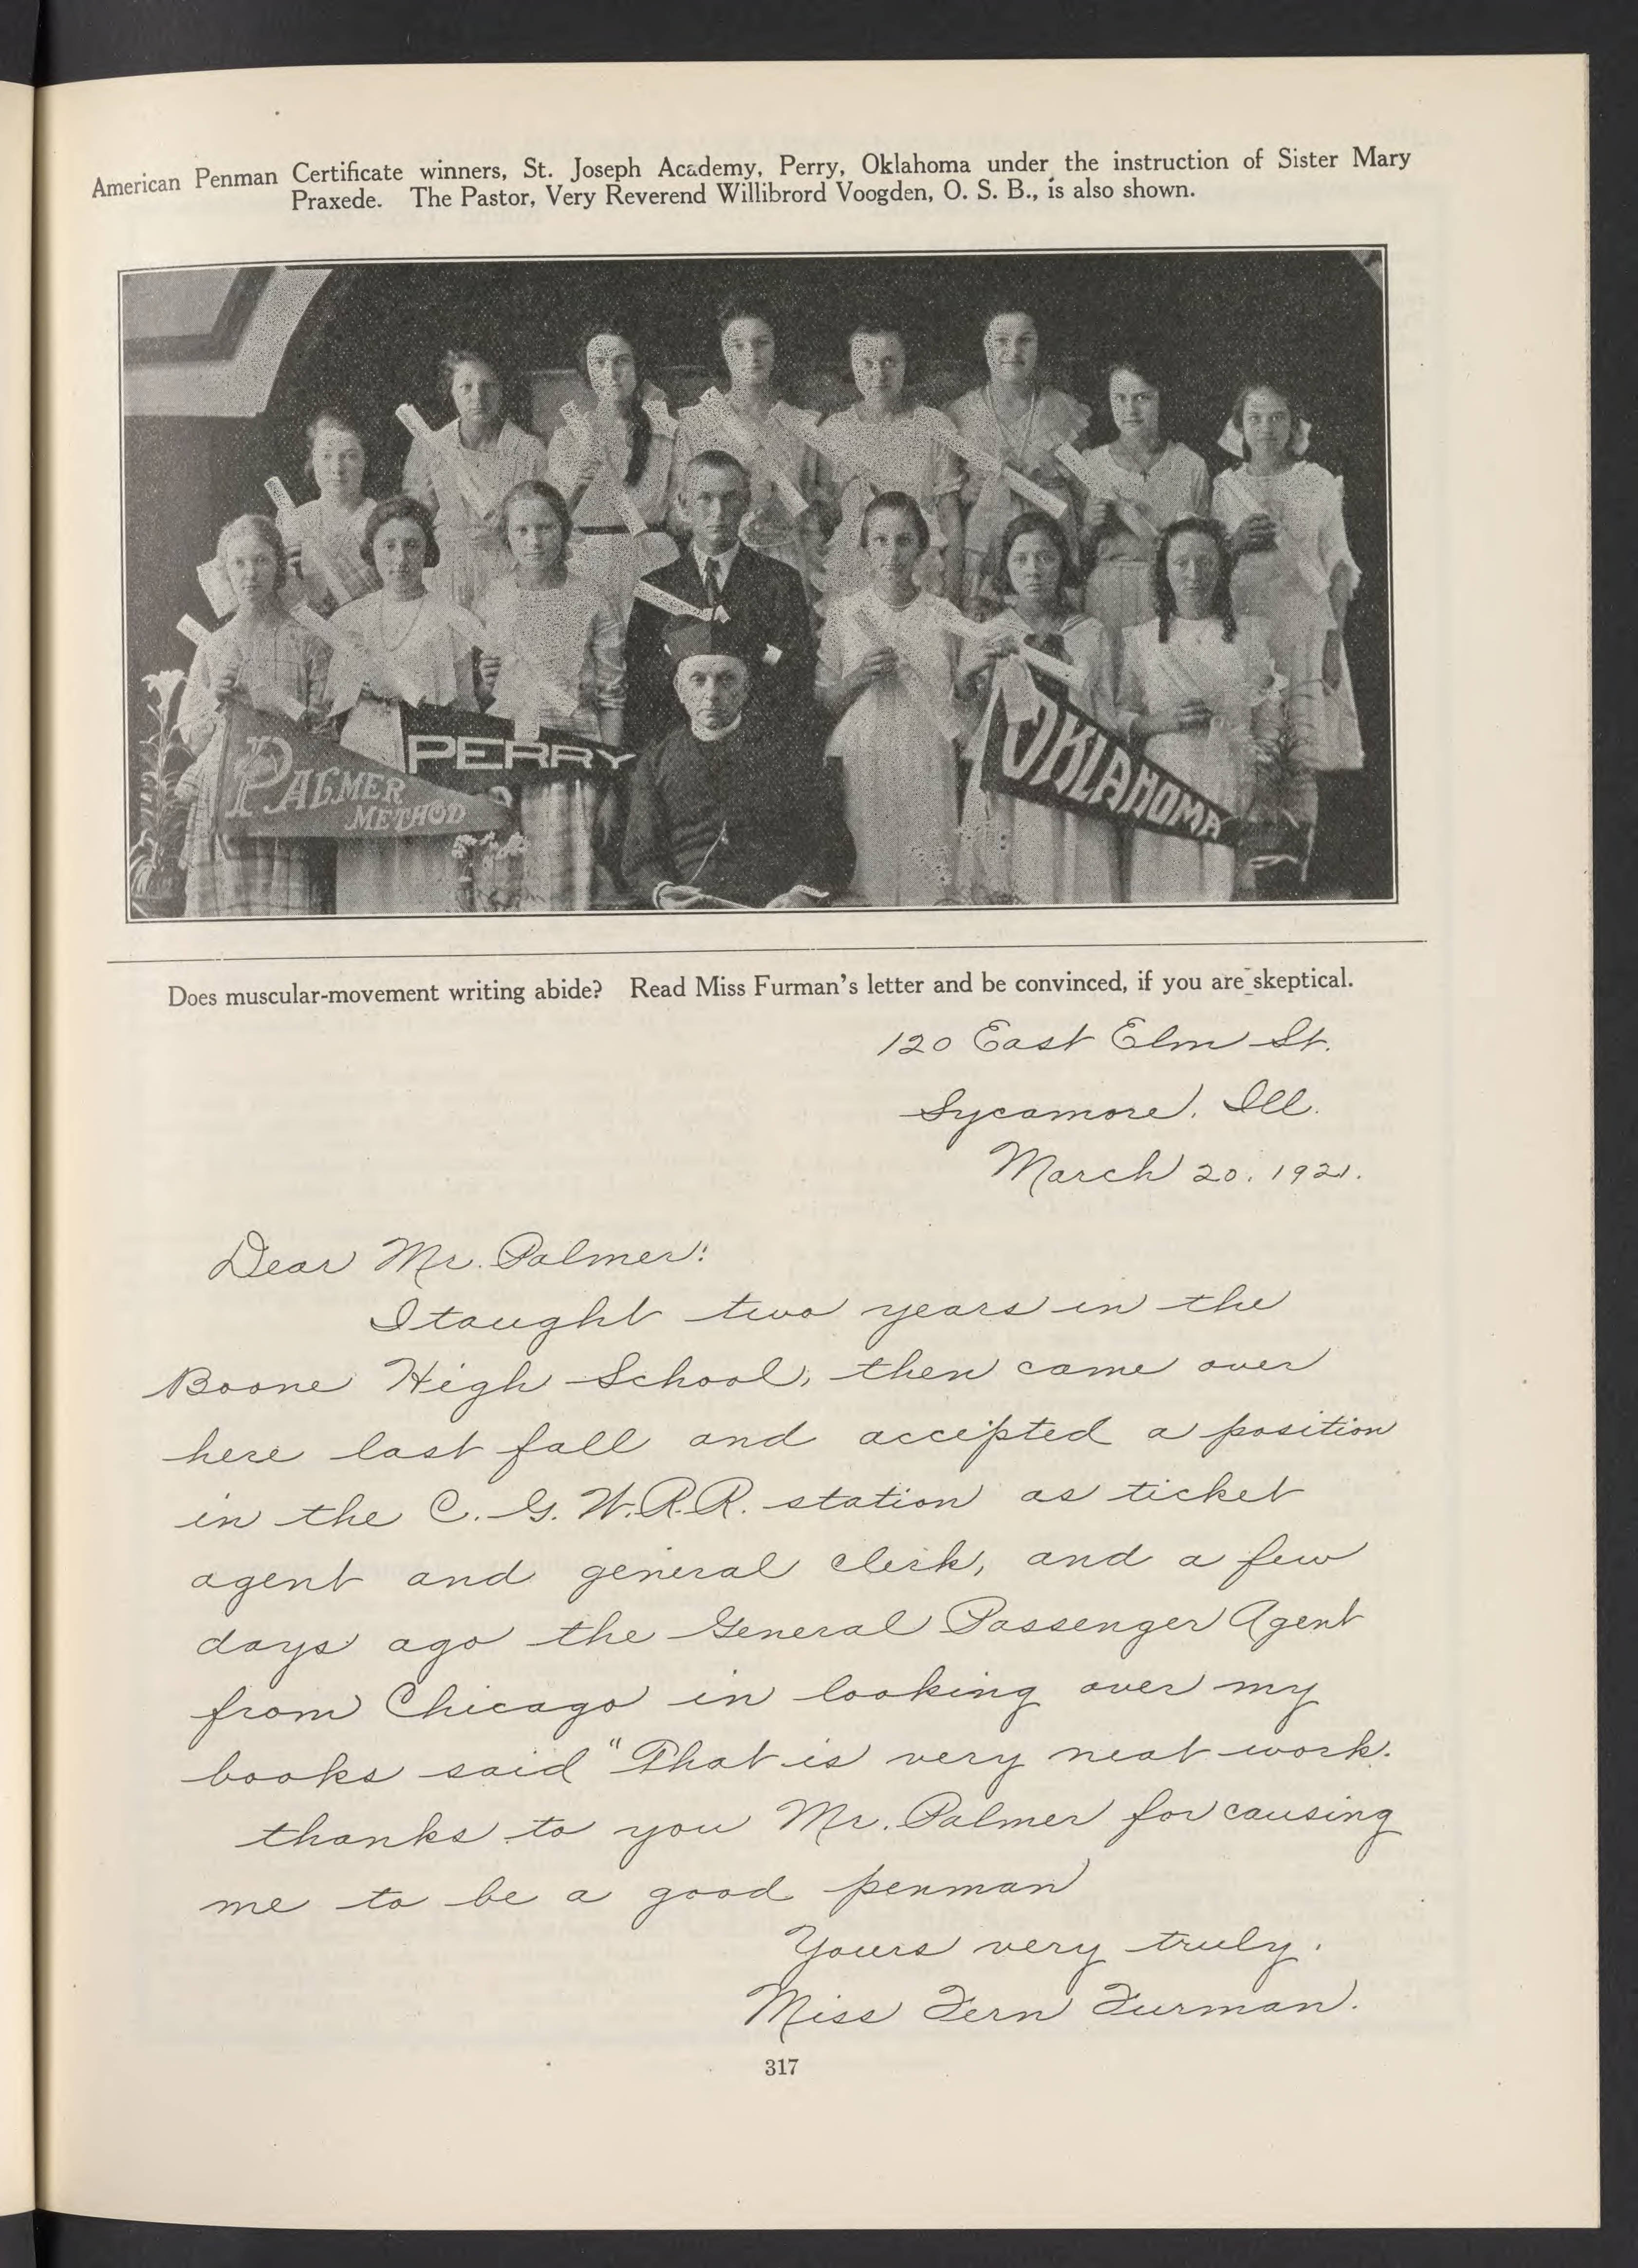 American Penman Certificate winners, St. Joseph Academy, Perry, Oklahoma under the instruction of Sister Mary
Praxede. The Pastor, Very Reverend Willibrord Voogden, O. S. B., is also shown.
PERRY
PALMER
METHOD
OKLAHOMA
Does muscular-movement writing abide? Read Miss Furman's letter and be convinced, if you are skeptical.
120 East Elm St.
Sycamore, Ill.
March 20, 1921.
Dear Mr. Palmer:
I taught two years in the
Boone High School, then came over
here last fall and accepted a position
in the C. G. W. R. R. station as ticket
agent and general clerk, and a few
days ago the General Passenger Agent
from Chicago in looking over my
books said "That is very neat work.
thanks to you Mr. Palmer for causing
me to be a good penman
Yours very truly,
Miss Fern Furman.
317